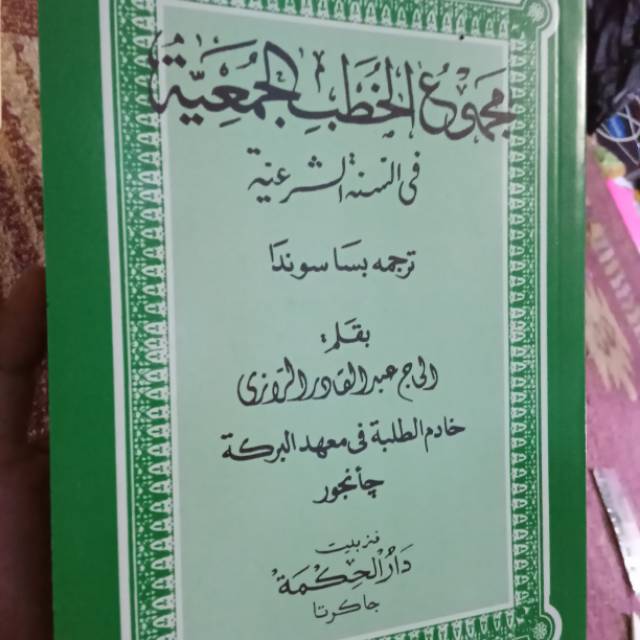 مجموع الخطب الجمعية
فى السنة الشرعية
ترجمه بسا سوندا
بقلم:
الحاج عبد القادر الرازى
خادم الطلبة فى معهد البركة
چيانجور
فنربيت
دَارُ الحِكْمَة
جاكرتا